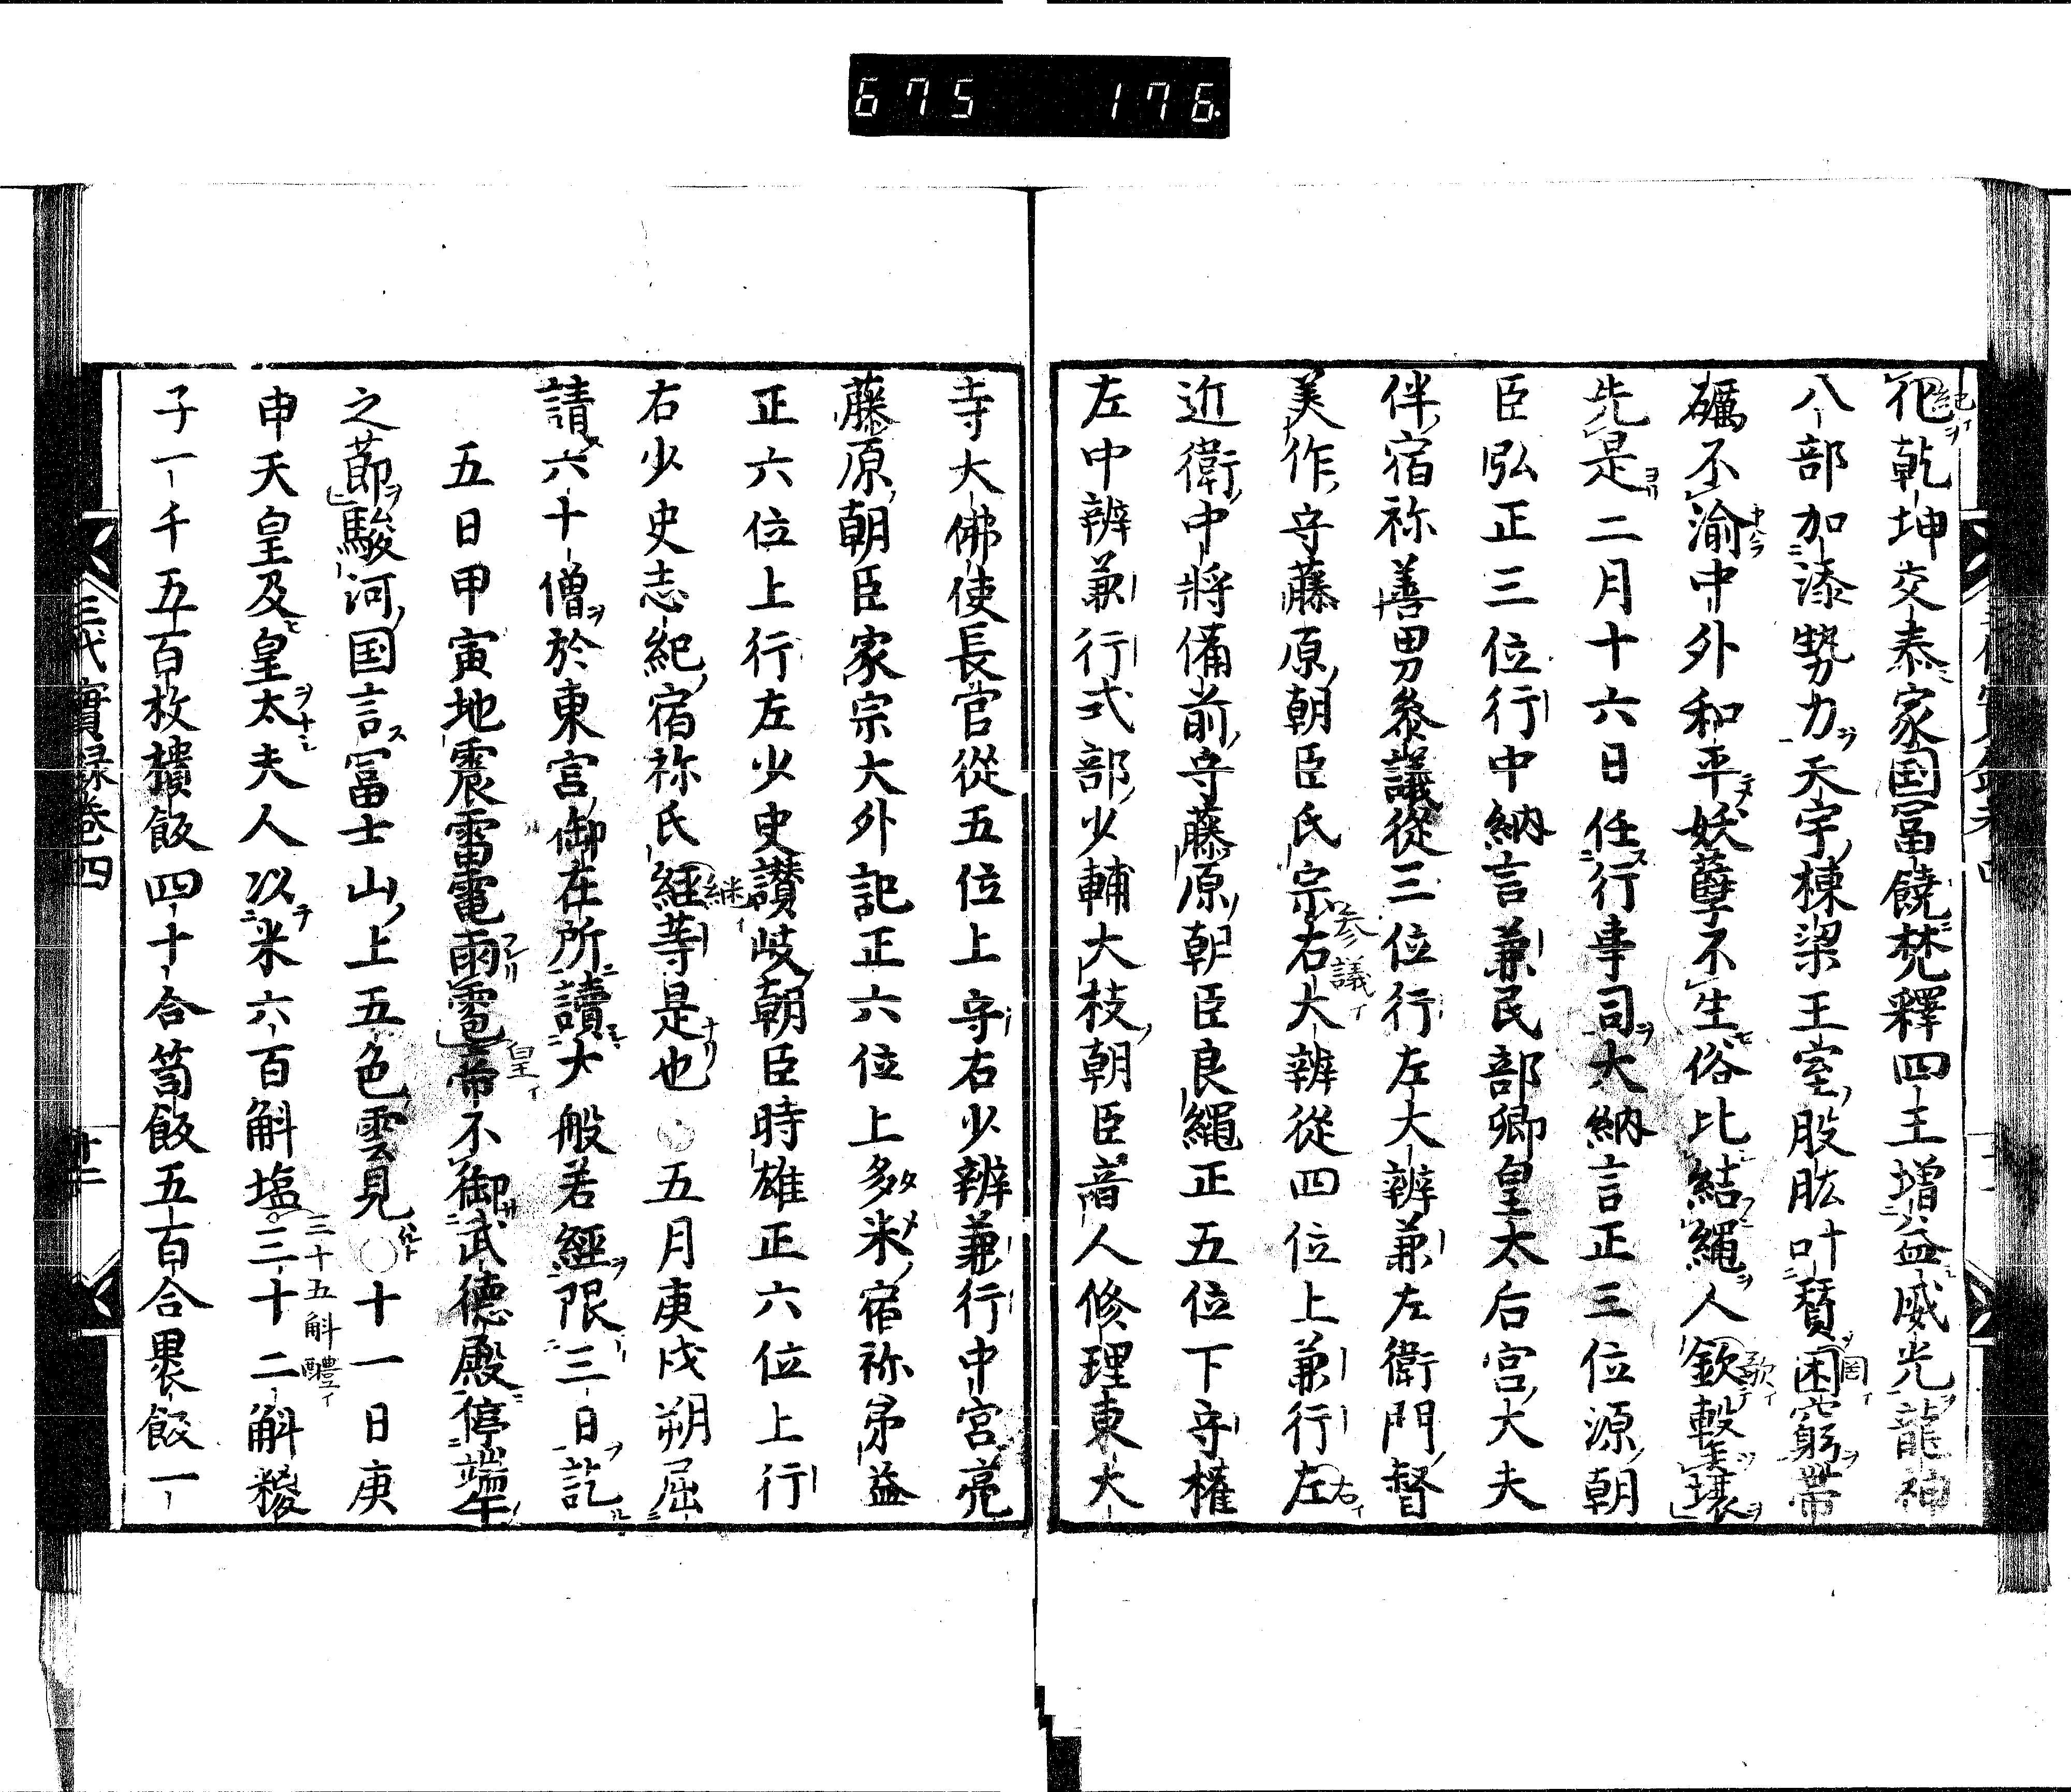 675 176.
祀乾坤交泰家国冨饒梵釋四王增益威光龍神
八部加漆勢力天宇棟梁王室股肱叶賛困窮帶
礪不渝中外和平妖孽不生俗比結繩人欽擊壤
先是二月十六日任行事司大納言正三位源朝
臣弘正三位行中納言兼民部卿皇太后宮大夫
伴宿祢善男叅議從三位行左大辨兼左衛門督
美作守藤原朝臣氏宗右大辨從四位上兼行左
近衛中將備前守藤原朝臣良繩正五位下守權
左中辨兼行式部少輔大枝朝臣音人修理東大
寺大佛使長官從五位上守右少辨兼行中宮亮
藤原朝臣家宗大外記正六位上多米宿祢弟益
正六位上行左少史讃岐朝臣時雄正六位上行
右少史志紀宿祢氏經等是也○五月庚戌朔屈
請六十僧於東宮御在所讀大般若經限三日訖
五日甲寅地震雷電雨雹帝不御武德殿停端午
之莭駿河国言冨士山上五色雲見○十一日庚
申天皇及皇太夫人以米六百斛塩三十二斛糉
子一千五百枚樻飯四十合笥飯五百合裹飯一
三代實録卷四
十二
紀イ
歌イ
罔イ
参議イ
右イ
継イ
皇イ
三十五斛醴イ